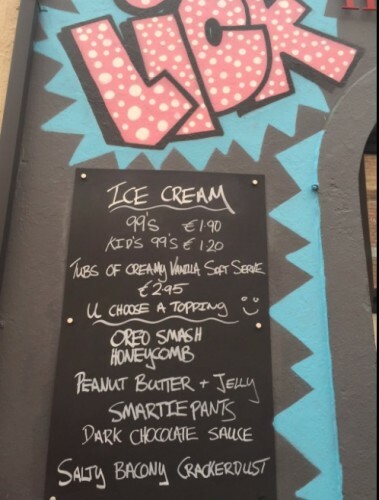 LICK
ICE CREAM
99's €1.90
KID'S 99's €1.20
TUBS OF CREAMY VANILLA SOFT SERVE
€2.95
U CHOOSE A TOPPING
OREO SMASH
HONEYCOMB
PEANUT BUTTER + JELLY
SMARTIE PANTS
DARK CHOCOLATE SAUCE
SALTY BACONY CRACKERDUST